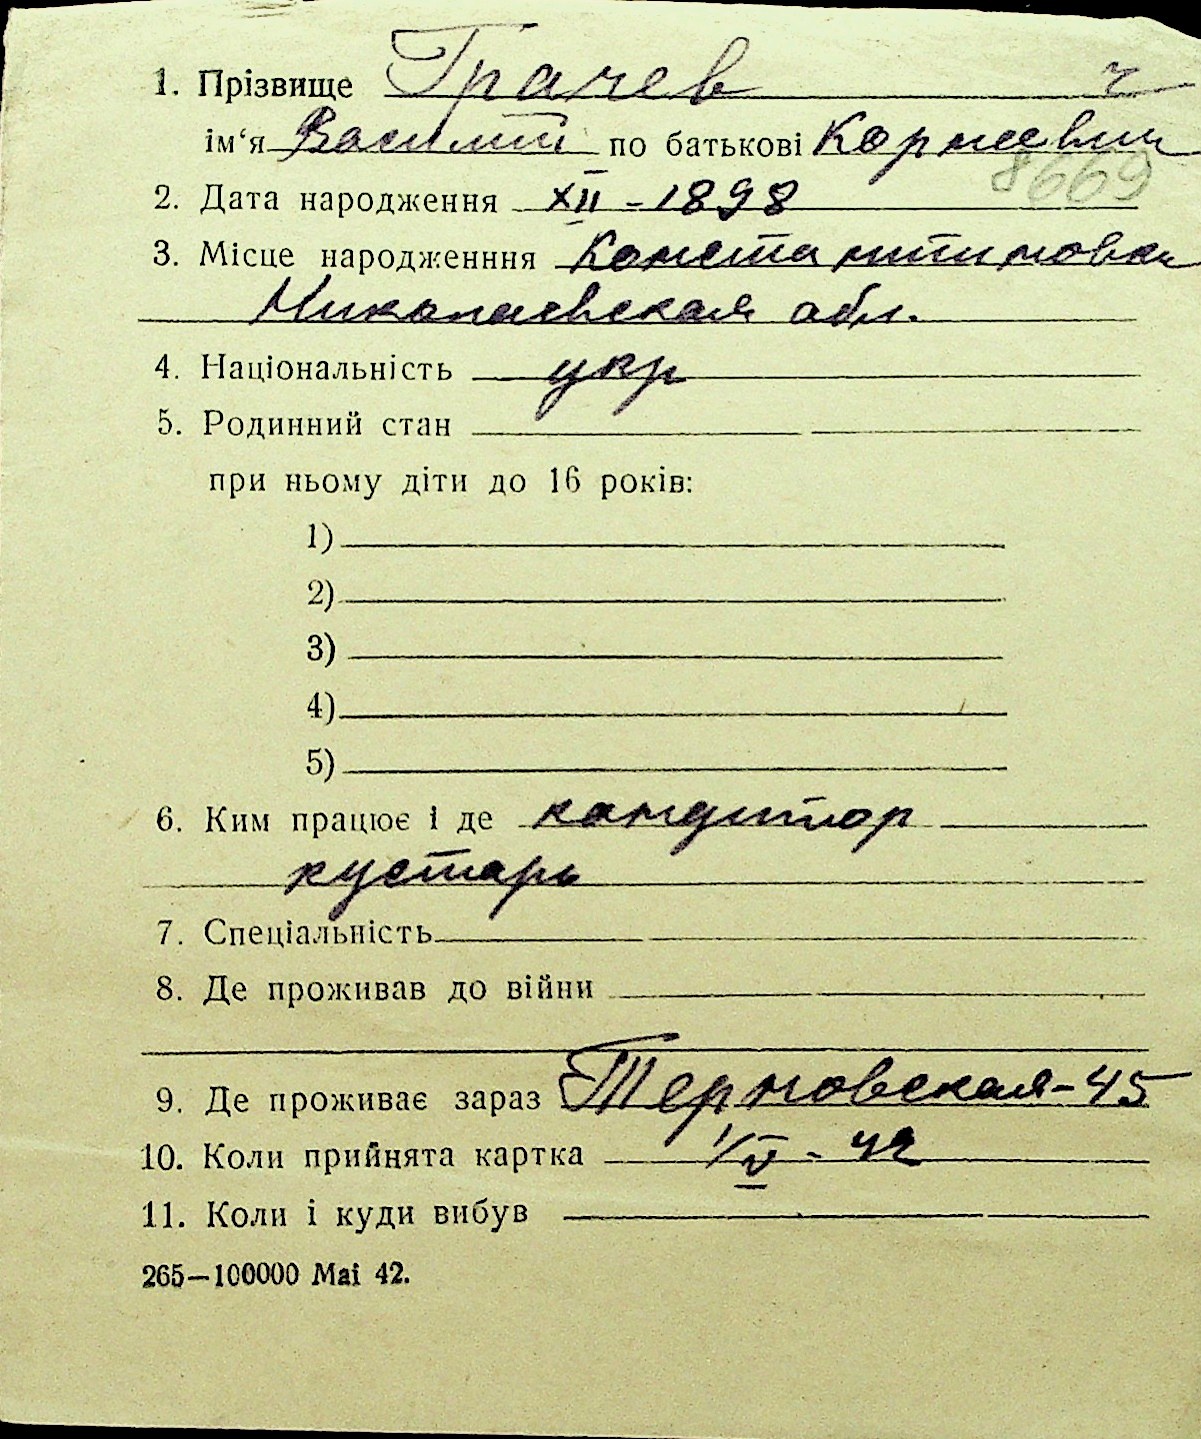 1. Прізвище Грачев ч
ім‘я Василий по батькові Корнеевич
8669
2. Дата народження XII - 1898
3. Місце народженння Константиновка
Николаевская обл.
4. Національність укр
5. Родинний стан
при ньому діти до 16 років:
1)
2)
3)
4)
5)
6. Ким працює і де кандитор
кустарь
7. Спеціальність
8. Де проживав до війни
9. Де проживає зараз Терновская-45
10. Коли прийнята картка 1/V - 42
11. Коли і куди вибув
265—100000 Маі 42.